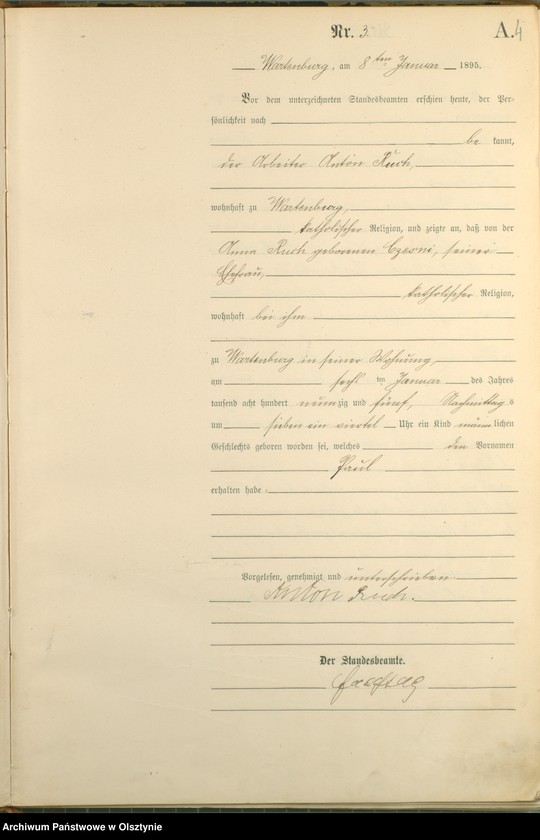 Nr. 3.
A.
4
Wartenburg, am 8ten Januar 1895.
Vor dem unterzeichneten Standesbeamten erschien heute, der Per-
sönlichkeit nach
be kannt,
der Arbeiter Anton Ruch,
wohnhaft zu Wartenburg,
katholischer Religion, und zeigte an, daß von der
Anna Ruch geborenen Czesni, seiner
Ehefrau,
katholischer Religion,
wohnhaft bei ihm
zu Wartenburg in seiner Wohnung,
am sechsten Januar des Jahres
tausend acht hundert neunzig und fünf, Nachmittags
um sieben ein viertel Uhr ein Kind männlichen
Geschlechts geboren worden sei, welches den Vornamen
Paul
erhalten habe.
Vorgelesen, genehmigt und unterschrieben
Anton Ruch.
Der Standesbeamte.
Archiwum Państwowe w Olsztynie